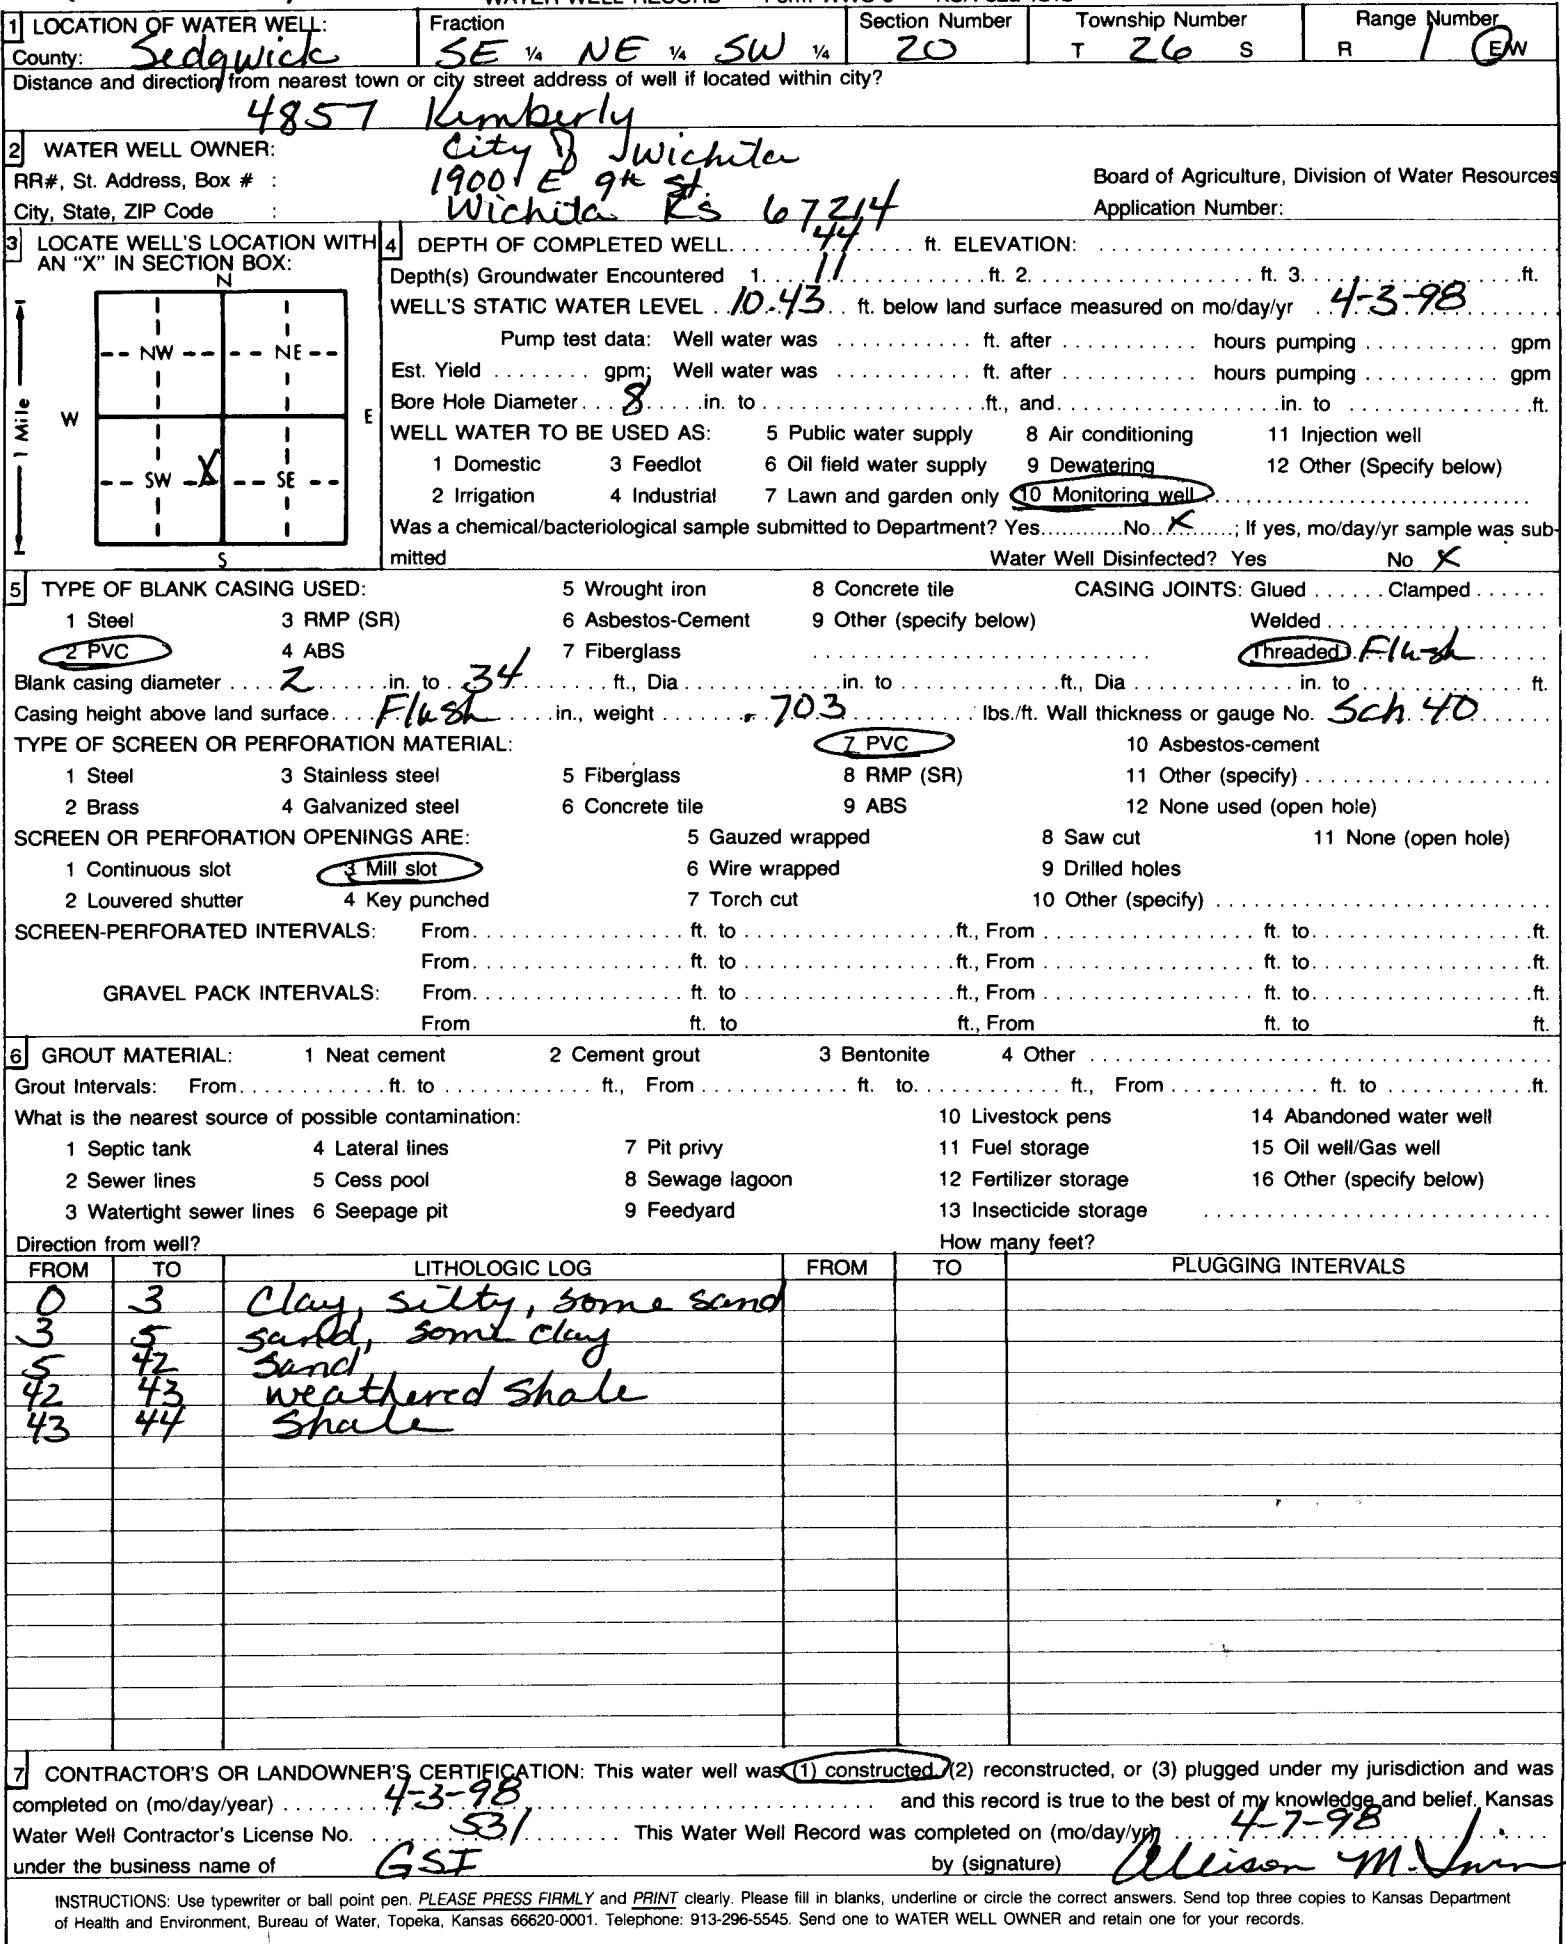 1 LOCATION OF WATER WELL: Fraction Section Number Township Number Range Number
County: Sedgwick SE ¼ NE ¼ SW ¼ 20 T 26 S R 1 E/W
Distance and direction from nearest town or city street address of well if located within city?
4857 Kimberly
2 WATER WELL OWNER: City of Wichita
RR#, St. Address, Box # : 1900 E 9th St. Board of Agriculture, Division of Water Resources
City, State, ZIP Code : Wichita Ks 67214 Application Number:
3 LOCATE WELL'S LOCATION WITH AN "X" IN SECTION BOX:
N
NW NE
W E
SW X SE
S
1 Mile
4 DEPTH OF COMPLETED WELL. 44 ft. ELEVATION:
Depth(s) Groundwater Encountered 1. 11 ft. 2. ft. 3. ft.
WELL'S STATIC WATER LEVEL 10.43 ft. below land surface measured on mo/day/yr 4-3-98
Pump test data: Well water was ft. after hours pumping gpm
Est. Yield gpm; Well water was ft. after hours pumping gpm
Bore Hole Diameter 8 in. to ft., and in. to ft.
WELL WATER TO BE USED AS: 5 Public water supply 8 Air conditioning 11 Injection well
1 Domestic 3 Feedlot 6 Oil field water supply 9 Dewatering 12 Other (Specify below)
2 Irrigation 4 Industrial 7 Lawn and garden only 10 Monitoring well
Was a chemical/bacteriological sample submitted to Department? Yes No X ; If yes, mo/day/yr sample was sub-
mitted Water Well Disinfected? Yes No X
5 TYPE OF BLANK CASING USED: 5 Wrought iron 8 Concrete tile CASING JOINTS: Glued Clamped
1 Steel 3 RMP (SR) 6 Asbestos-Cement 9 Other (specify below) Welded
2 PVC 4 ABS 7 Fiberglass Threaded Flush
Blank casing diameter 2 in. to 34 ft., Dia in. to ft., Dia in. to ft.
Casing height above land surface Flush in., weight .703 lbs./ft. Wall thickness or gauge No. Sch 40
TYPE OF SCREEN OR PERFORATION MATERIAL: 7 PVC 10 Asbestos-cement
1 Steel 3 Stainless steel 5 Fiberglass 8 RMP (SR) 11 Other (specify)
2 Brass 4 Galvanized steel 6 Concrete tile 9 ABS 12 None used (open hole)
SCREEN OR PERFORATION OPENINGS ARE: 5 Gauzed wrapped 8 Saw cut 11 None (open hole)
1 Continuous slot 3 Mill slot 6 Wire wrapped 9 Drilled holes
2 Louvered shutter 4 Key punched 7 Torch cut 10 Other (specify)
SCREEN-PERFORATED INTERVALS: From ft. to ft., From ft. to ft.
From ft. to ft., From ft. to ft.
GRAVEL PACK INTERVALS: From ft. to ft., From ft. to ft.
From ft. to ft., From ft. to ft.
6 GROUT MATERIAL: 1 Neat cement 2 Cement grout 3 Bentonite 4 Other
Grout Intervals: From ft. to ft., From ft. to ft., From ft. to ft.
What is the nearest source of possible contamination: 10 Livestock pens 14 Abandoned water well
1 Septic tank 4 Lateral lines 7 Pit privy 11 Fuel storage 15 Oil well/Gas well
2 Sewer lines 5 Cess pool 8 Sewage lagoon 12 Fertilizer storage 16 Other (specify below)
3 Watertight sewer lines 6 Seepage pit 9 Feedyard 13 Insecticide storage
Direction from well? How many feet?
FROM TO LITHOLOGIC LOG FROM TO PLUGGING INTERVALS
0 3 Clay, silty, some sand
3 5 sand, some clay
5 42 Sand
42 43 weathered Shale
43 44 Shale
7 CONTRACTOR'S OR LANDOWNER'S CERTIFICATION: This water well was (1) constructed, (2) reconstructed, or (3) plugged under my jurisdiction and was
completed on (mo/day/year) 4-3-98 and this record is true to the best of my knowledge and belief. Kansas
Water Well Contractor's License No. 531 This Water Well Record was completed on (mo/day/yr) 4-7-98
under the business name of GSI by (signature) Allison M.
INSTRUCTIONS: Use typewriter or ball point pen. PLEASE PRESS FIRMLY and PRINT clearly. Please fill in blanks, underline or circle the correct answers. Send top three copies to Kansas Department
of Health and Environment, Bureau of Water, Topeka, Kansas 66620-0001. Telephone: 913-296-5545. Send one to WATER WELL OWNER and retain one for your records.